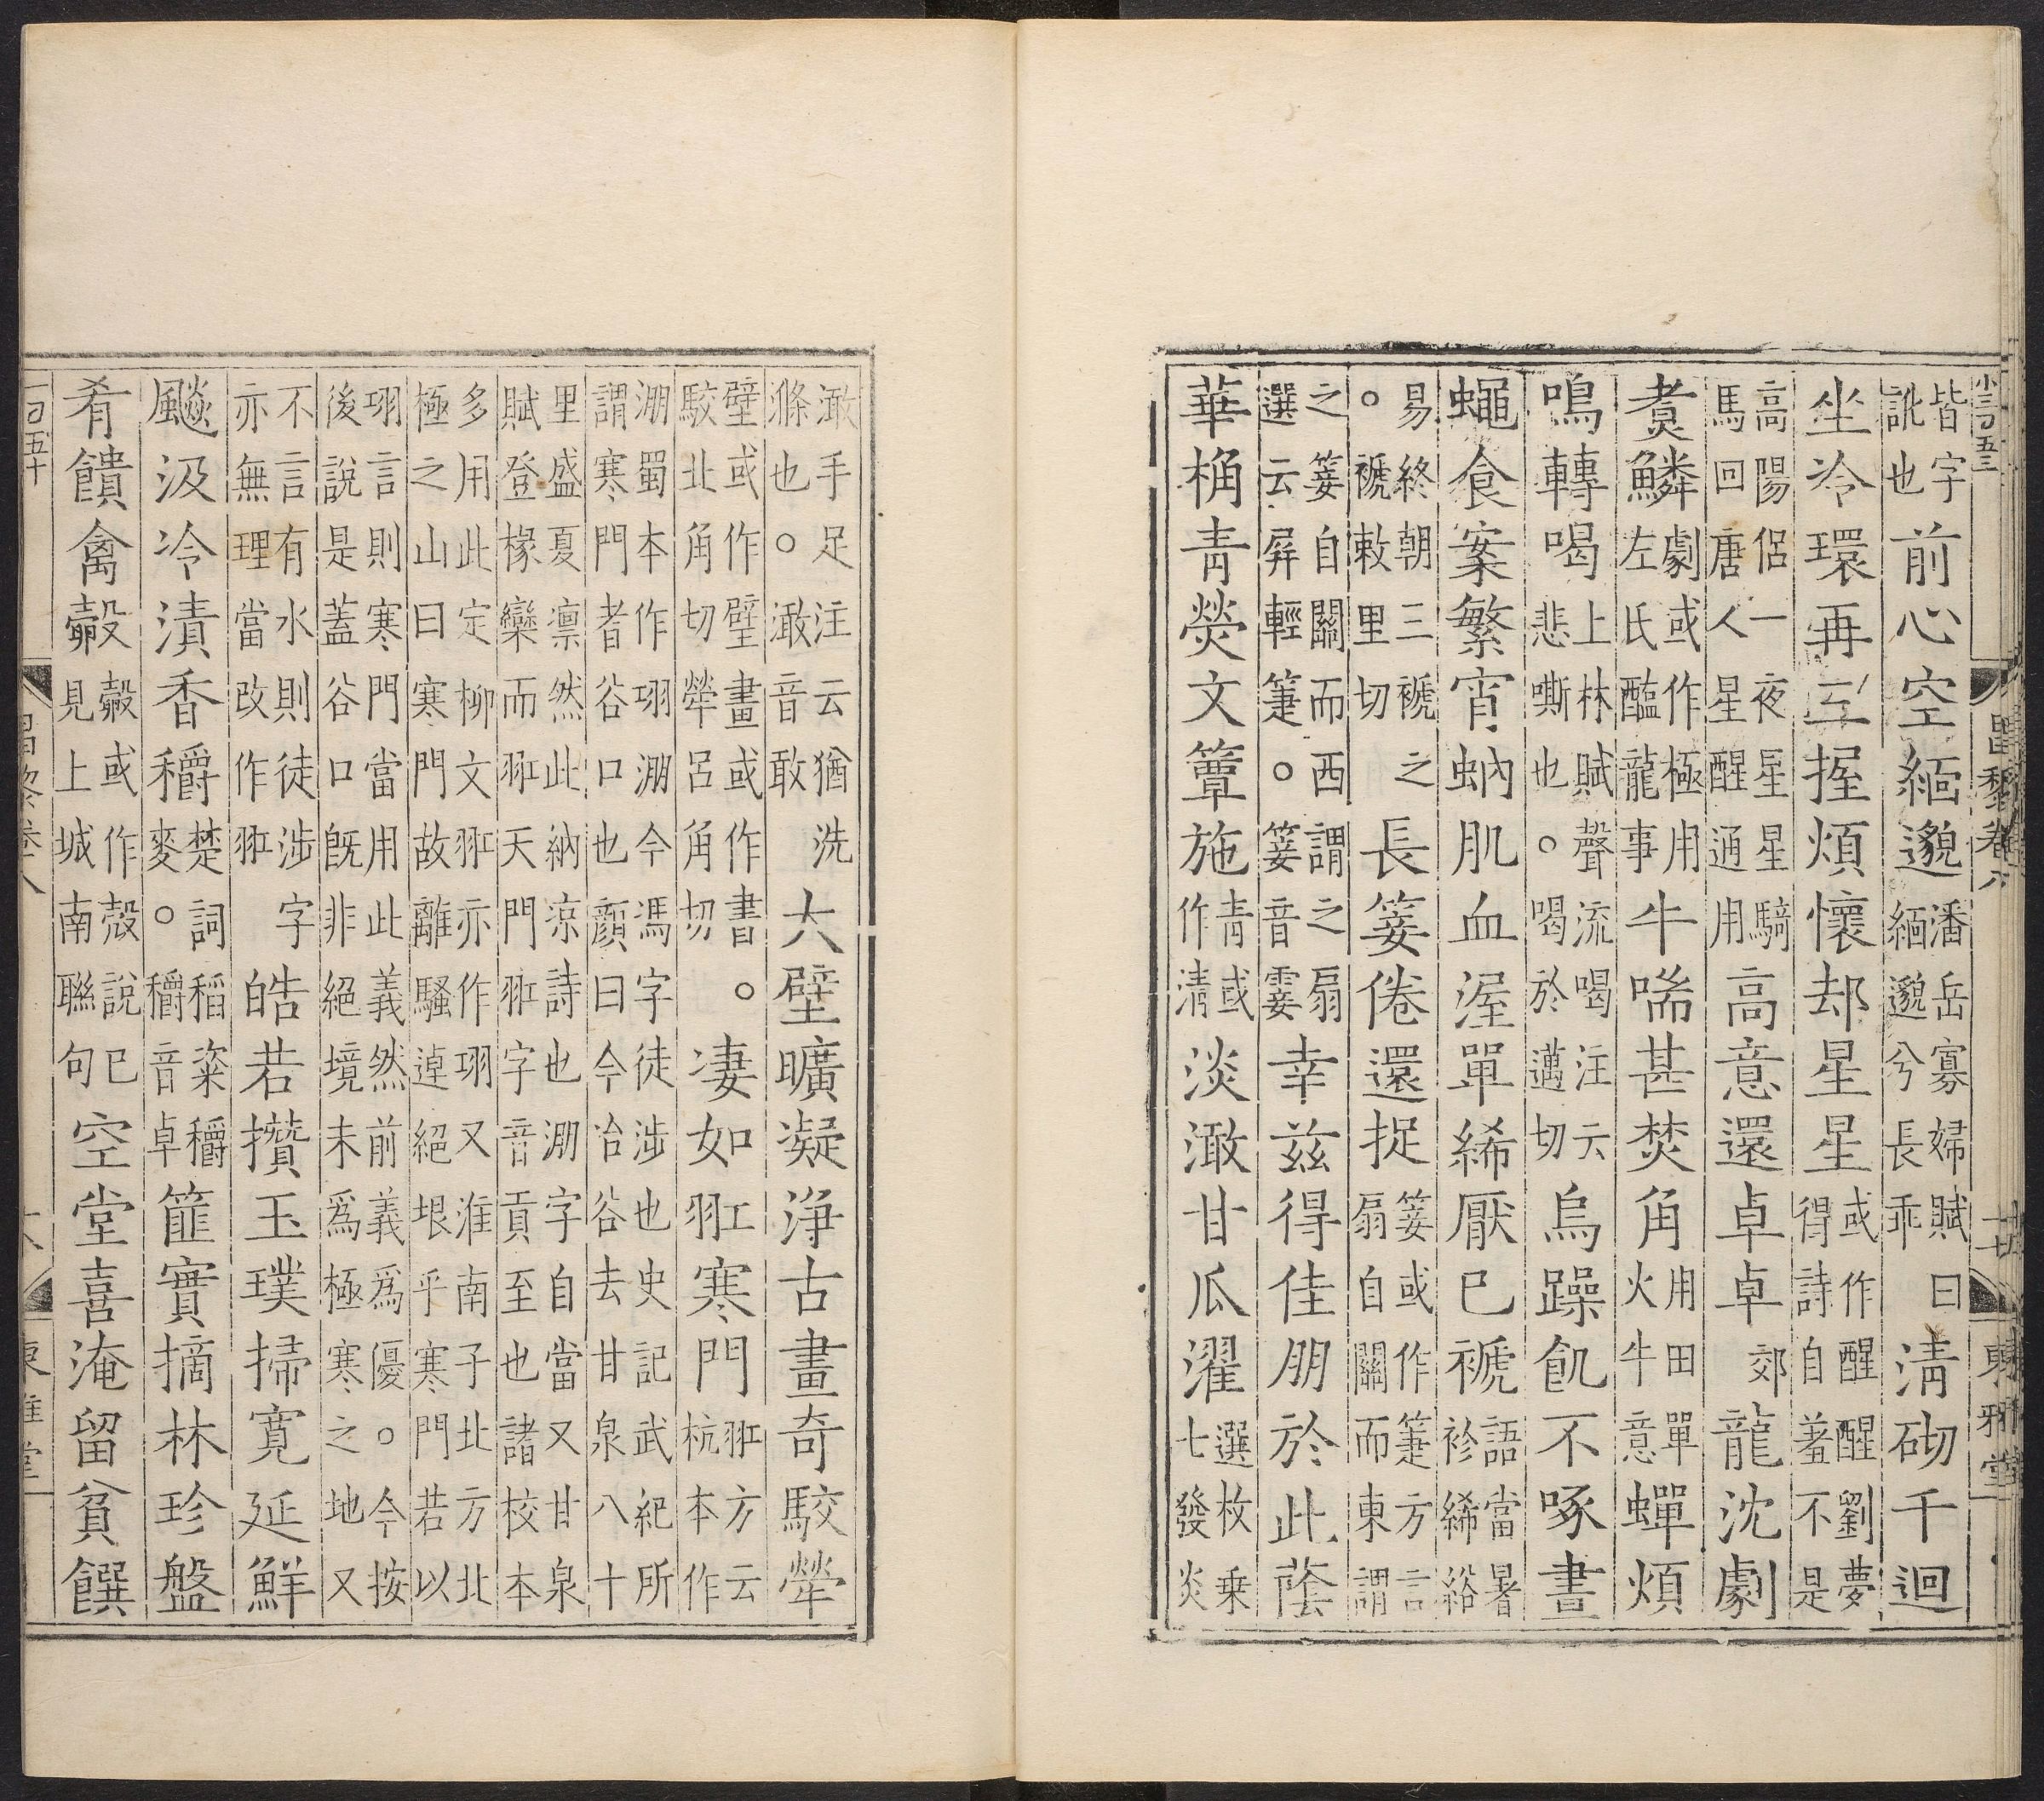 小三百五三 昌黎卷八 廿七 東雅堂
皆字訛也前心空緬邈潘岳寡婦賦曰緬邈兮長乖清砌千迴
坐冷環再三握煩懷却星星或作醒醒劉夢得詩自羞不是
高陽侶一夜星星騎馬回唐人星醒通用高意還卓卓郊龍沈劇
煑鱗劇或作極用左氏醢龍事牛喘甚焚角用田單火牛意蟬煩
鳴轉喝上林賦聲流喝注云悲嘶也。喝於邁切烏躁飢不啄晝
蠅食案繁宵蚋肌血渥單絺厭已褫語當暑袗絺綌
易終朝三褫之。褫敕里切長箑倦還捉箑或作箠方言扇自關而東謂
之箑自關而西謂之扇選云屏輕箑。箑音霎幸兹得佳朋於此蔭
華桷青熒文簟施青或作清淡澉甘瓜濯選枚乗七發炎
澉手足注云猶洗滌也。澉音敢大壁曠凝淨古畫奇駮犖
壁或作璧畫或作書。駮北角切犖呂角切凄如羾寒門羾方云杭本作
淜蜀本作珝淜今馮字徒涉也史記武紀所謂寒門者谷口也顏曰今冶谷去甘泉八十
里盛夏凛然此納涼詩也淜字自當又甘泉賦登椽欒而羾天門羾字音貢至也諸校本
多用此定柳文羾亦作珝又淮南子北方北極之山曰寒門故離騷逴絕垠乎寒門若以
珝言則寒門當用此義然前義爲優。今按後說是蓋谷口旣非絕境未爲極寒之地又
不言有水則徒涉字亦無理當改作羾皓若攢玉璞掃寬延鮮
飈汲冷漬香穱楚詞稻粢穱麥。穱音卓篚實摘林珍盤
肴饋禽㲉㲉或作殻說已見上城南聯句空堂喜淹留貧饌